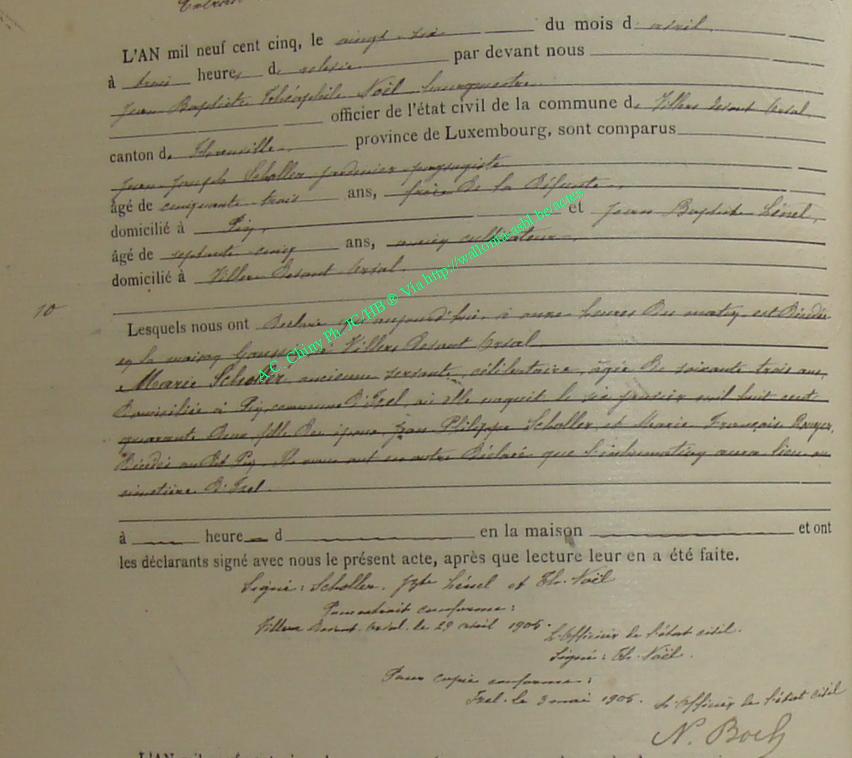 L'AN mil neuf cent cinq, le vingt-six du mois d avril
à trois heures de relevée par devant nous
Jean Baptiste Théophile Noël bourgmestre
officier de l'état civil de la commune de Villers devant Orval,
canton de Florenville province de Luxembourg, sont comparus
Jean Joseph Scholler jardinier-paysagiste
âgé de cinquante-trois ans, frère de la défunte,
domicilié à Pin, et Jean Baptiste Hénel,
âgé de septante cinq ans, ancien cultivateur,
domicilié à Villers devant Orval.
10
Lesquels nous ont déclaré qu'aujourd'hui, à onze heures du matin, est décédée
en la maison Villers devant Orval
Marie Scholler, ancienne servante, célibataire, âgée de soixante trois ans,
domiciliée à Pin, commune d'Izel, où elle naquit le six janvier mil huit cent
quarante deux fille des époux Jean Philippe Scholler, et Marie François
décédés au dit Pin. Ils nous ont en outre déclaré que l'inhumation aura lieu au
cimetière d'Izel.
à heure d en la maison et ont
les déclarants signé avec nous le présent acte, après que lecture leur en a été faite.
Signé: Scholler. Jbte Hénel et Th. Noël
Pour extrait conforme:
Villers devant Orval, le 29 avril 1905.
L'officier de l'état civil.
Signé: Th. Noël.
Pour copie conforme:
Izel, le 3 mai 1905. L'officier de l'état civil
N. Boch
A.C. Chiny Ph. JC/HB ® Via http://wallonia-asbl.be/actes